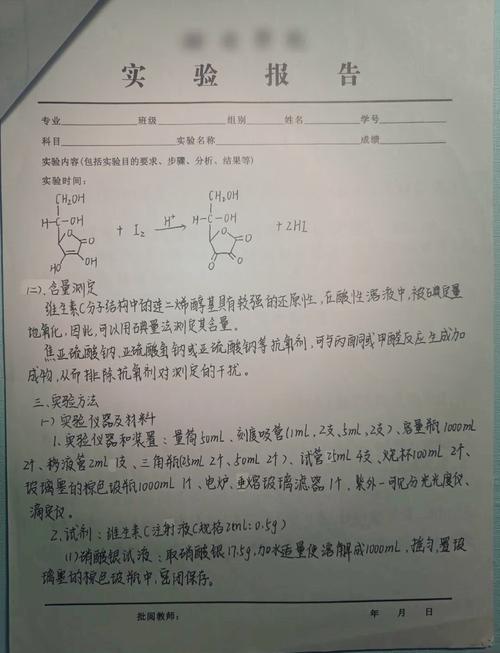 实 验 报 告
专业 班级 组别 姓名 学号
科目 实验名称 成绩
实验内容(包括实验目的要求、步骤、分析、结果等)
实验时间:
CH₂OH CH₂OH
H–OH + I₂ H⁺ H–OH + 2HI
O O O O
HO OH O O
(二)、含量测定
维生素C分子结构中的连二烯醇基具有较强的还原性,在酸性溶液中,被碘定量
地氧化,因此,可以用碘量法测定其含量。
焦亚硫酸钠、亚硫酸氢钠或亚硫酸钠等抗氧剂,可与丙酮或甲醛反应生成加
成物,从而排除抗氧剂对测定的干扰。
三、实验方法
(一)实验仪器及材料
1.实验仪器和装置:量筒50mL、刻度吸管(1mL,2支、5mL,2支)、容量瓶1000ml
2个、移液管2mL 1支、三角瓶(25ml 2个、50mL 2个)、试管25mL 4支、烧杯100mL 2个、
玻璃塞的棕色玻瓶1000mL 1个、电炉、垂熔玻璃滤器1个、紫外-可见分光光度仪、
滴定仪。
2.试剂:维生素C注射液(规格2ml:0.5g)
(1)硝酸银试液:取硝酸银17.5g,加水适量使溶解成1000mL,摇匀,置玻
璃塞的棕色玻瓶中,密闭保存。
批阅教师: 年 月 日